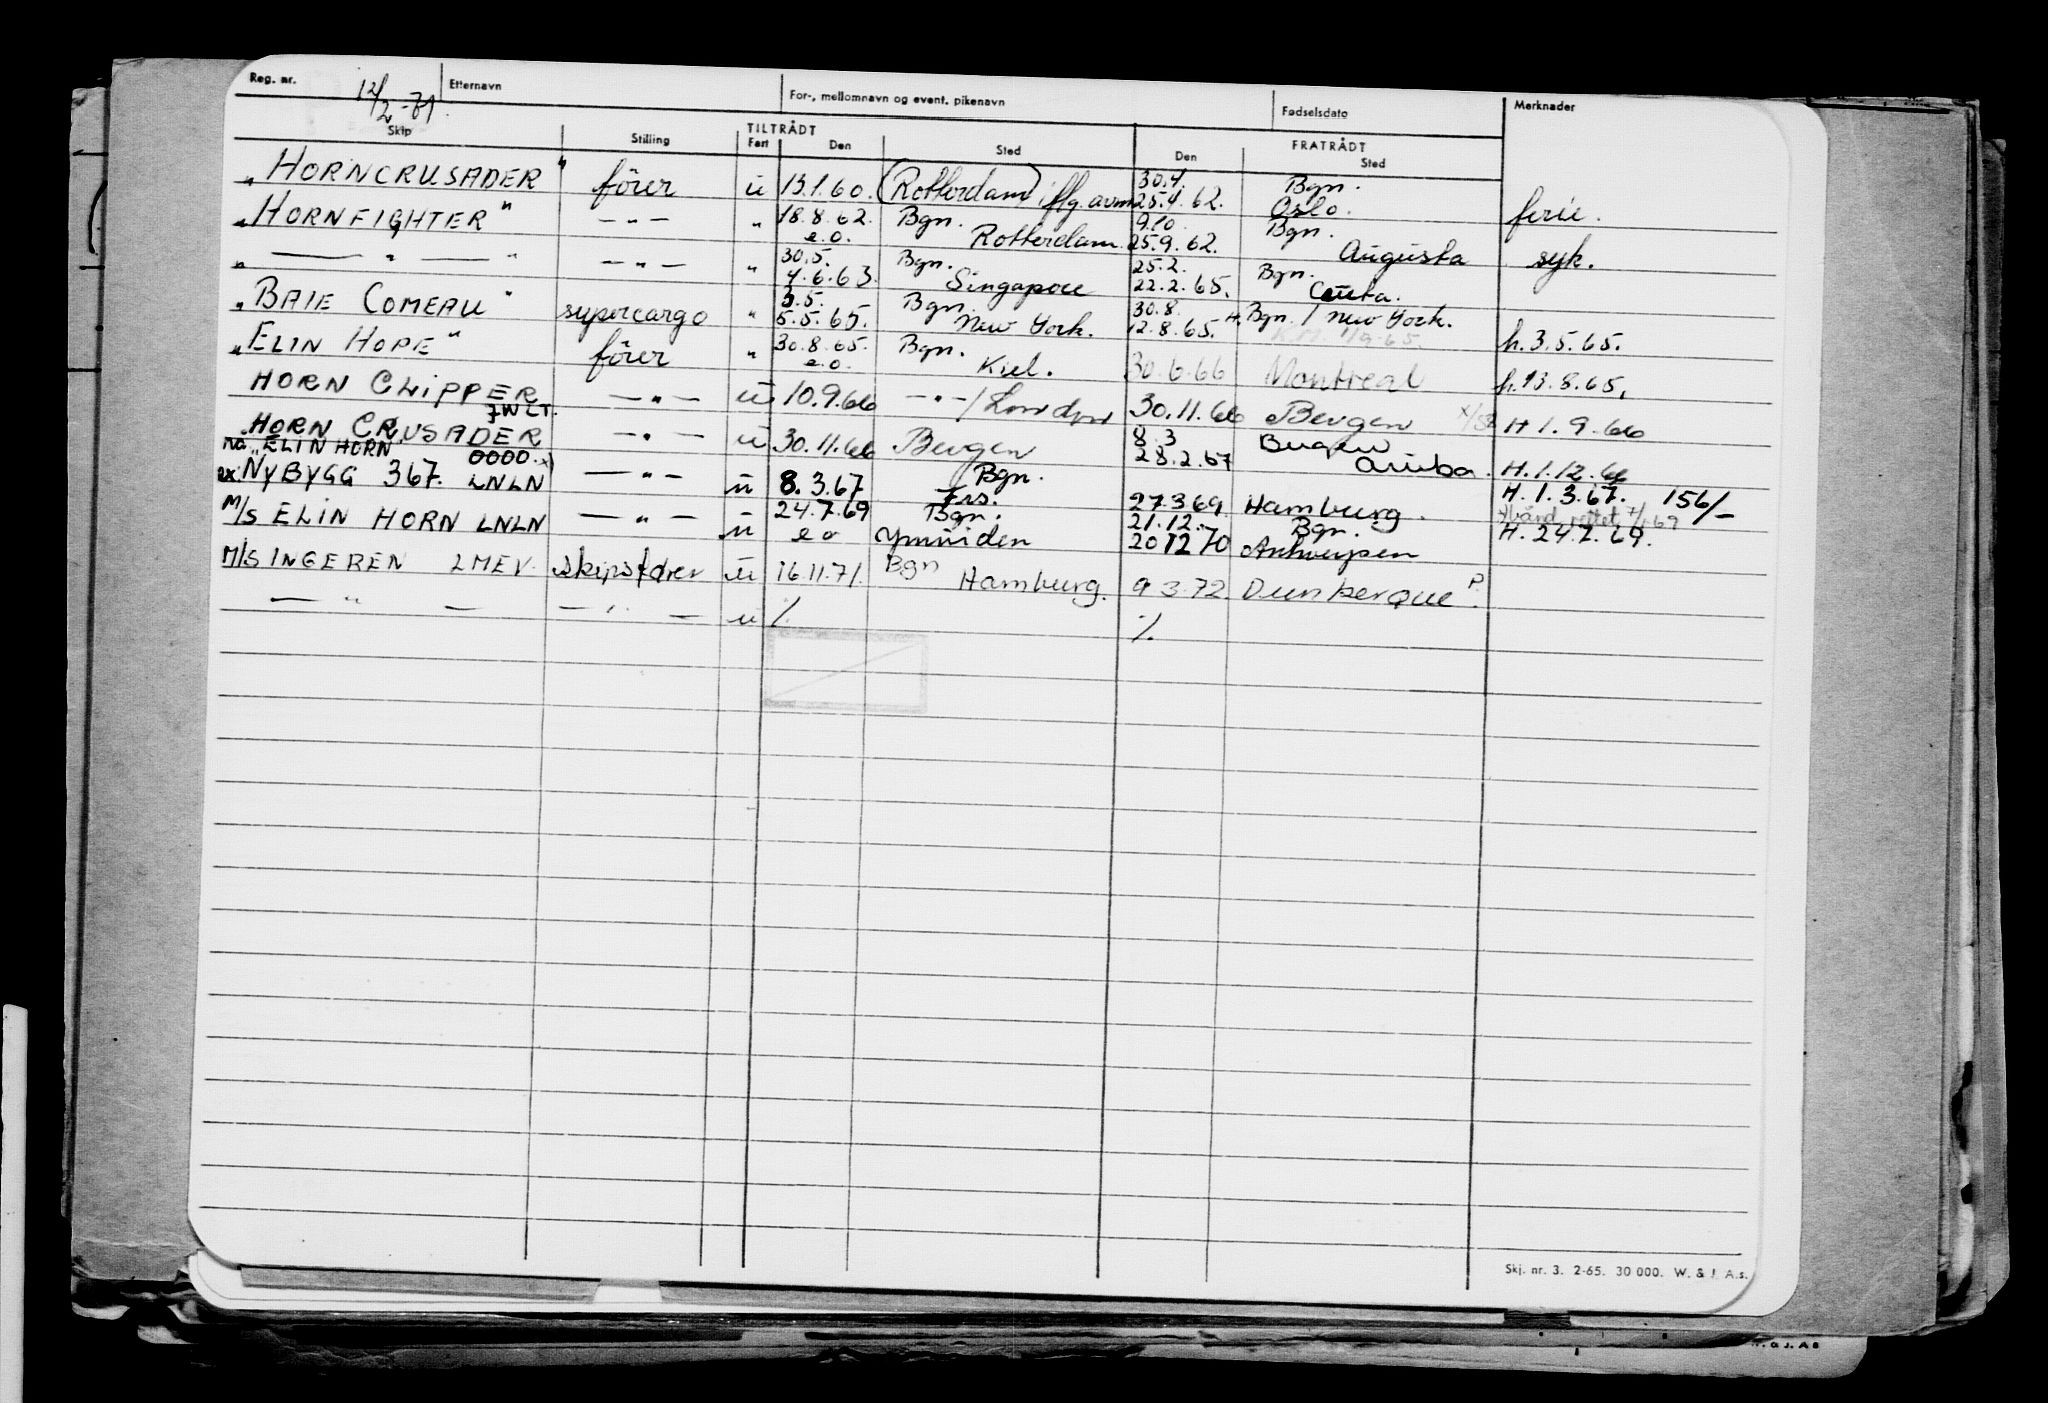 Reg. nr. 12/2-71 Etternavn For-, mellomnavn og event. pikenavn Fødselsdato Merknader
TILTRÅDT FRATRÅDT
Skip Stilling Fart Den Sted Den Sted
"HORNCRUSADER" förer ü 13.1.60. (Rotterdam) iflg. avm 30.4. 25.4.62. Bgn. Oslo. ferie.
"HORNFIGHTER" — " — " 18.8.62. e.o. Bgn. Rotterdam. 9.10. 25.9.62. Bgn. Augusta syk.
" — " — " — " — " 30.5. 4.6.63. Bgn. Singapore 25.2. 22.2.65. Bgn. Ceuta.
"BAIE COMEAU" supercargo " 3.5. 5.5.65. Bgn. New York. 30.8. 12.8.65. H. Bgn. / New York. h. 3.5.65.
"ELIN HOPE" förer " 30.8.65. e.o. Bgn. Kiel. 30.6.66 Montreal h. 13.8.65.
HORN CLIPPER JWLT. — " — ü 10.9.66 — " — / London 30.11.66 Bergen H 1.9.66
HORN CRUSADER — " — ü 30.11.66 Bergen 8.3 28.2.67 Bergen Aruba. H. 1.12.66
nå "ELIN HORN OOOO. x)
ex. NYBYGG 367. LNLN — " — ü 8.3.67 Bgn. Frs. 27.3.69. Hamburg. H. 1.3.67. 156/-
M/S ELIN HORN LNLN — " — ü 24.7.69 e o Bgn. Ymuiden 21.12. 20 12 70 Bgn. Antwerpen H. 24.7.69.
M/S INGEREN LMEV. skipsfører ü 16.11.71. Bgn Hamburg. 9.3.72. Dunkerque P.
— " — — " — ü % %
Skj. nr. 3. 2-65. 30 000. W. & J. A.s.